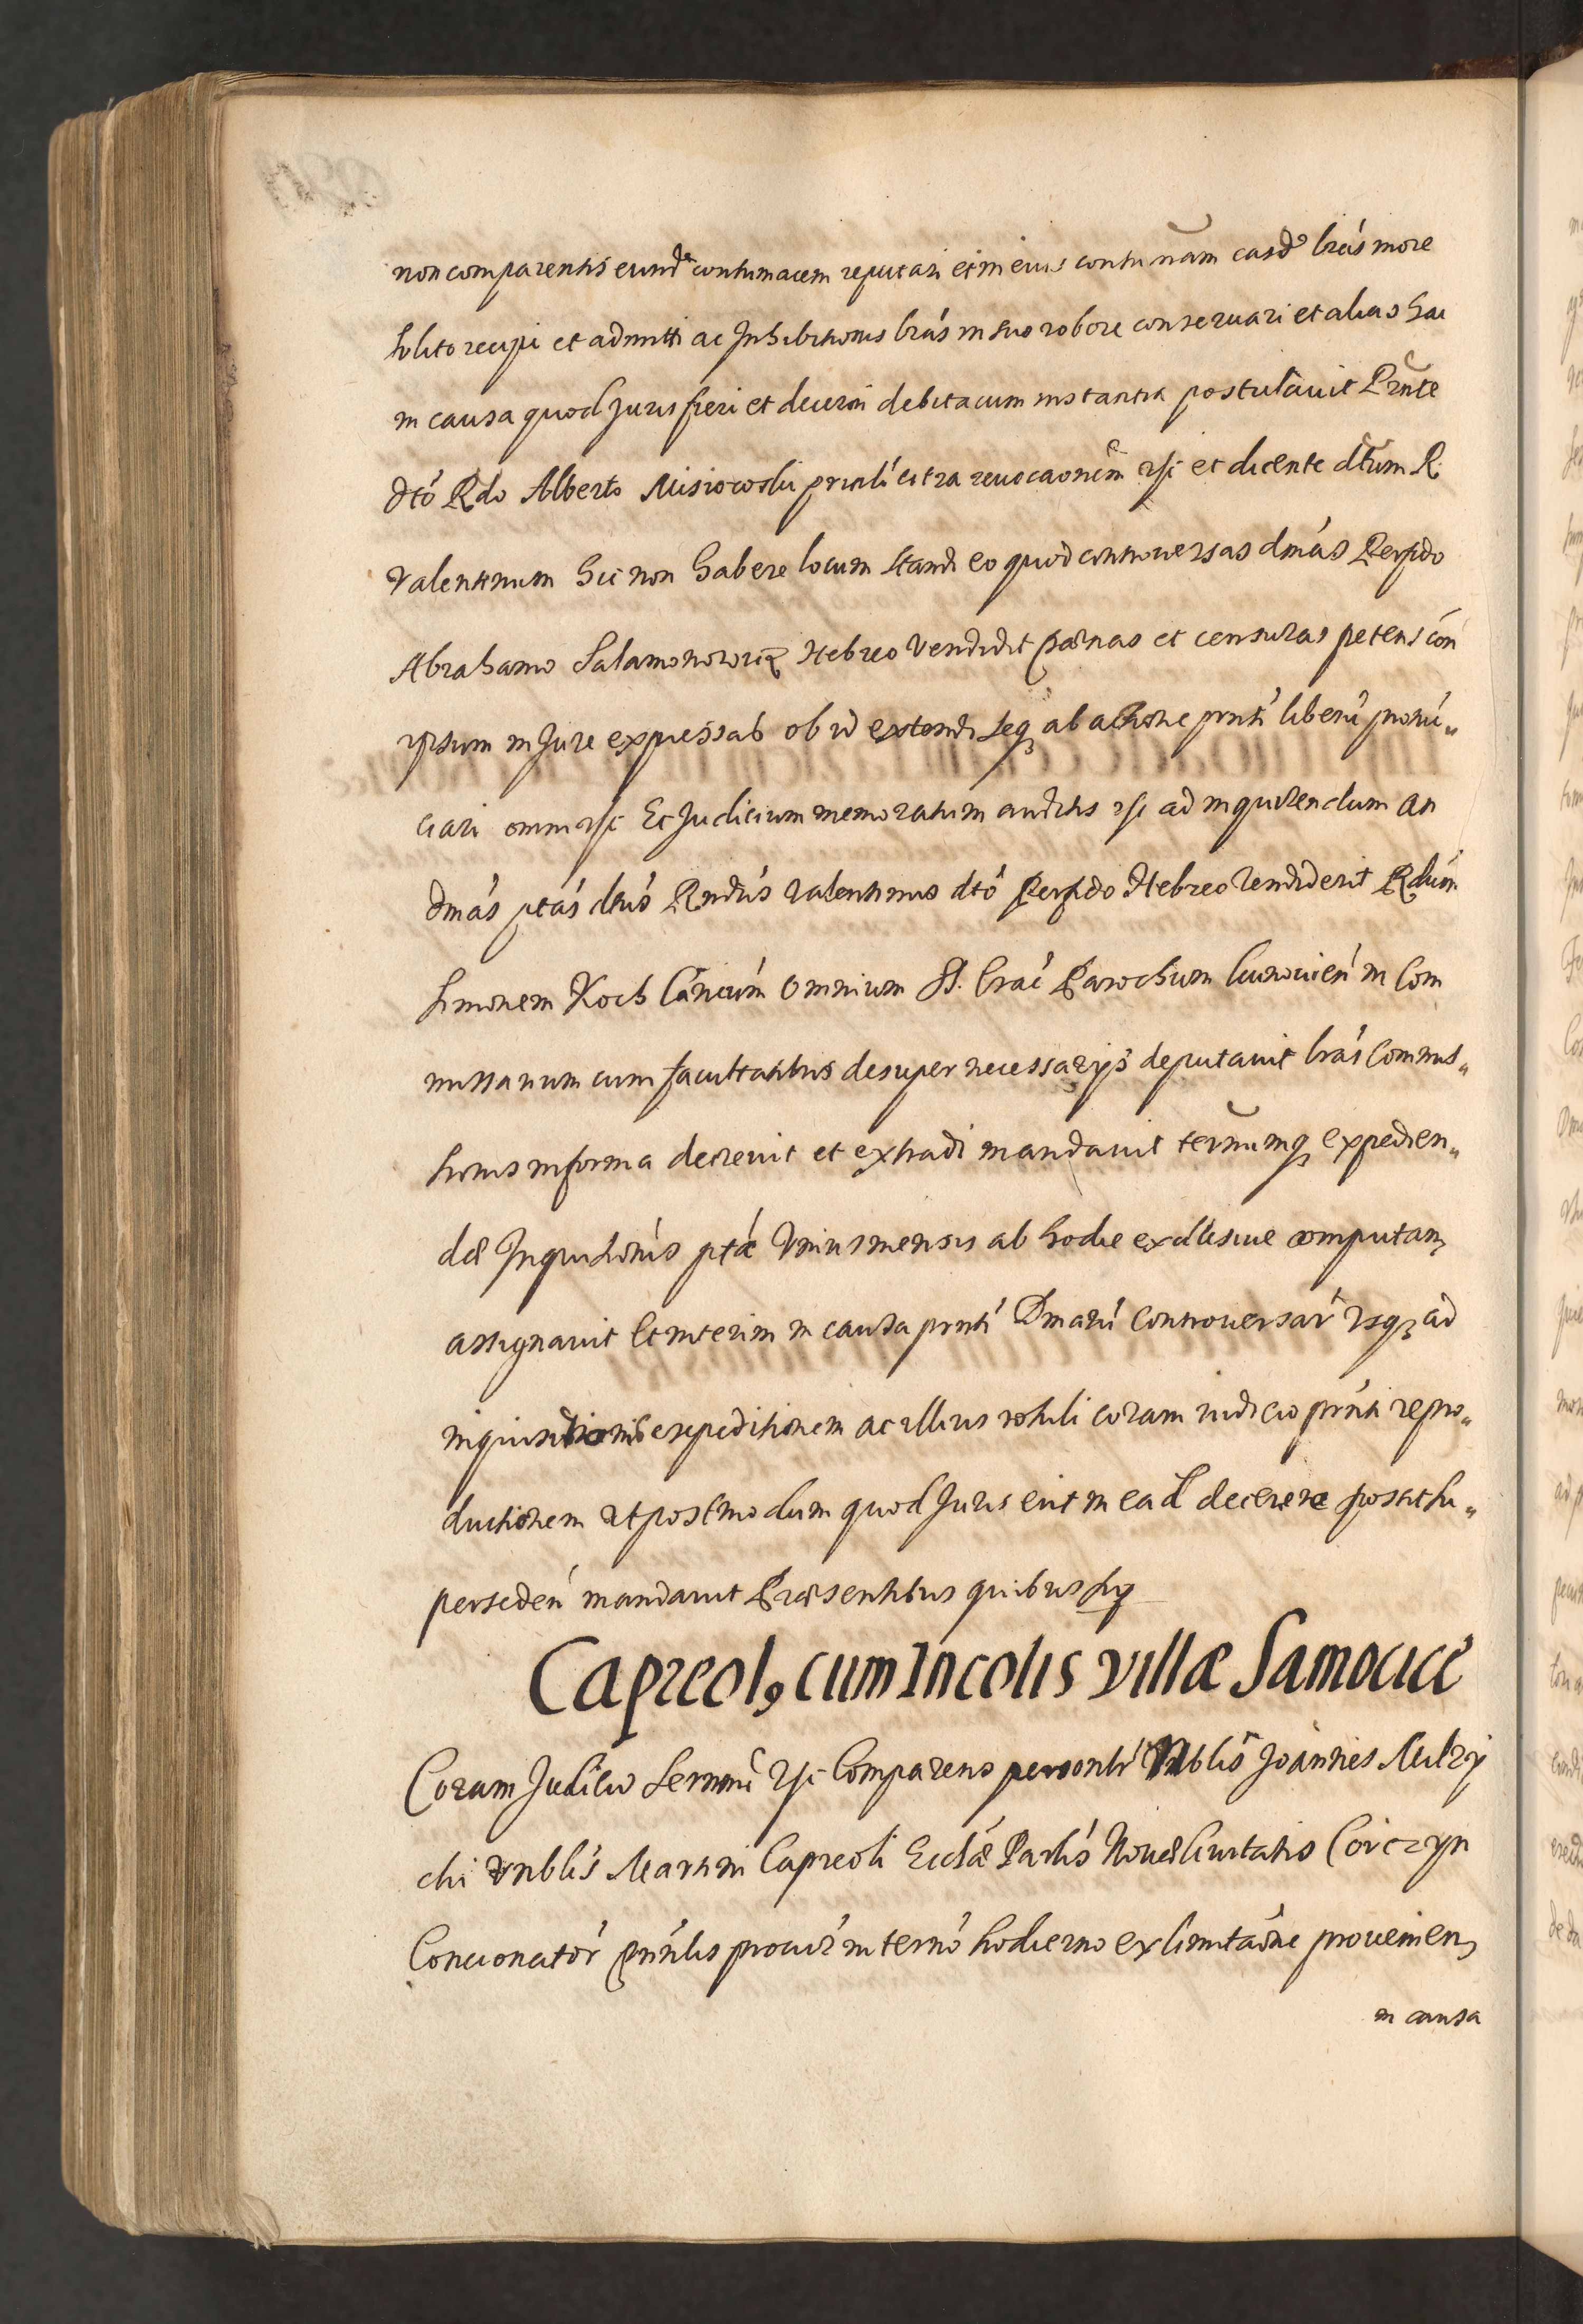 non comparentis eund contumacem reputari et in eius contumam easd lras more
solito recipi et admitti ac Inhibitionis lras in suo robore conseruari et alias hac
in causa quod Juris fieri et decerni debita cum instantia postulauit Prnte
dto Rdo Alberto Misiowski prncli citra reuocaonem rsp et dicente dtum R.
Valentinum hic non habere locum standi eo quod controuersas dmas Perfido
Abrahamo Salamonowicz Hebreo vendidit pænas et censuras petens con
ipsum in Jure expressas ob id extendi seq ab actione prnti liberu pronu„
ciari omni Et Judicium memoratum auditis ad inquirendum an
dmas ptas dtus Rndus Valentinus dto Perfido Hebreo Vendiderit Rdum
Simonem Koch Cancum Omnium SS. Crac Parochum Luxouien in Com
missarium cum facultatibus desuper necessarijs deputauit lras Commis„
sionis in forma decreuit et extradi mandauit termumq expedien„
dæ Inquisitionis ptæ Vnius mensis ab hodie exclusiue computan
assignauit Et interim in causa prnti Dmaru Controuersar vsq ad
inquisitionis expeditionem ac illius rotuli coram iudicio prnti repro„
ductionem vt postmodum quod Juris erit in ead decerere possit su„
perseden mandauit Præsentibus quibus sup
Capreol, cum Incolis villæ Samocice
Coram Judicio Sermni Comparens personlr Nblis Joannes Mulzy
cki Vnblis Martini Capreoli Eccłæ Parlis Nouæ Ciuitatis Corczyn
Concionator prnlis procur in termo hodierno ex limitaone prouenien
in causa